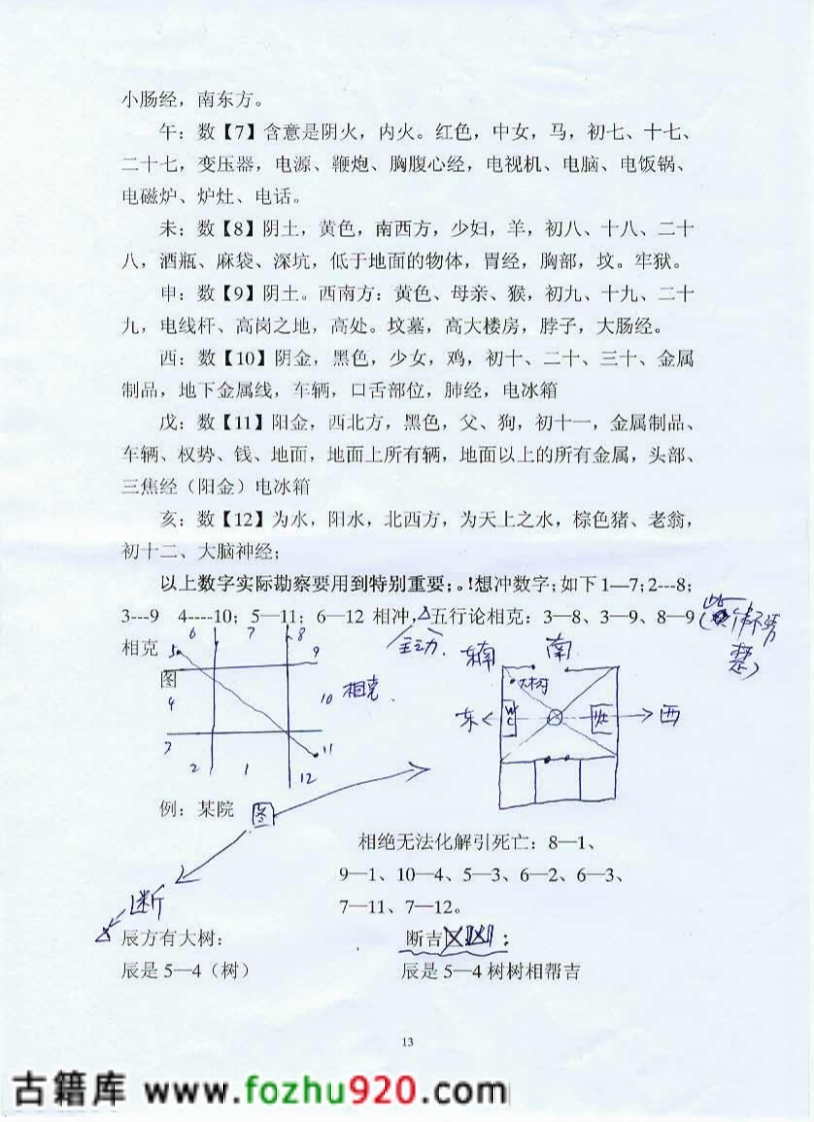 小肠经，南东方。
午：数【7】含意是阴火，内火。红色，中女，马，初七、十七、
二十七，变压器，电源、鞭炮、胸腹心经，电视机、电脑、电饭锅、
电磁炉、炉灶、电话。
未：数【8】阴土，黄色，南西方，少妇，羊，初八、十八、二十
八，酒瓶、麻袋、深坑，低于地面的物体，胃经，胸部，坟。牢狱。
申：数【9】阴土。西南方：黄色、母亲、猴，初九、十九、二十
九，电线杆、高岗之地，高处。坟墓，高大楼房，脖子，大肠经。
酉：数【10】阴金，黑色，少女，鸡，初十、二十、三十、金属
制品，地下金属线，车辆，口舌部位，肺经，电冰箱
戊：数【11】阳金，西北方，黑色，父、狗，初十一，金属制品、
车辆、权势、钱、地面，地面上所有辆，地面以上的所有金属，头部、
三焦经（阳金）电冰箱
亥：数【12】为水，阳水，北西方，为天上之水，棕色猪、老翁，
初十二、大脑神经；
以上数字实际勘察要用到特别重要；。！想冲数字；如下 1—7；2---8；
3---9 4----10；5—11；6—12 相冲，五行论相克：3—8、3—9、8—9
相克
主动
6 7 8
5 9
图
4 10 相克
3 11
2 1 12
东南 南
大树
东 WC 灶 西
例：某院 图
相绝无法化解引死亡：8—1、
9—1、10—4、5—3、6—2、6—3、
7—11、7—12。
断
辰方有大树：
断吉凶：
辰是 5—4（树）
辰是 5—4 树树相帮吉
13
古籍库 www.fozhu920.com